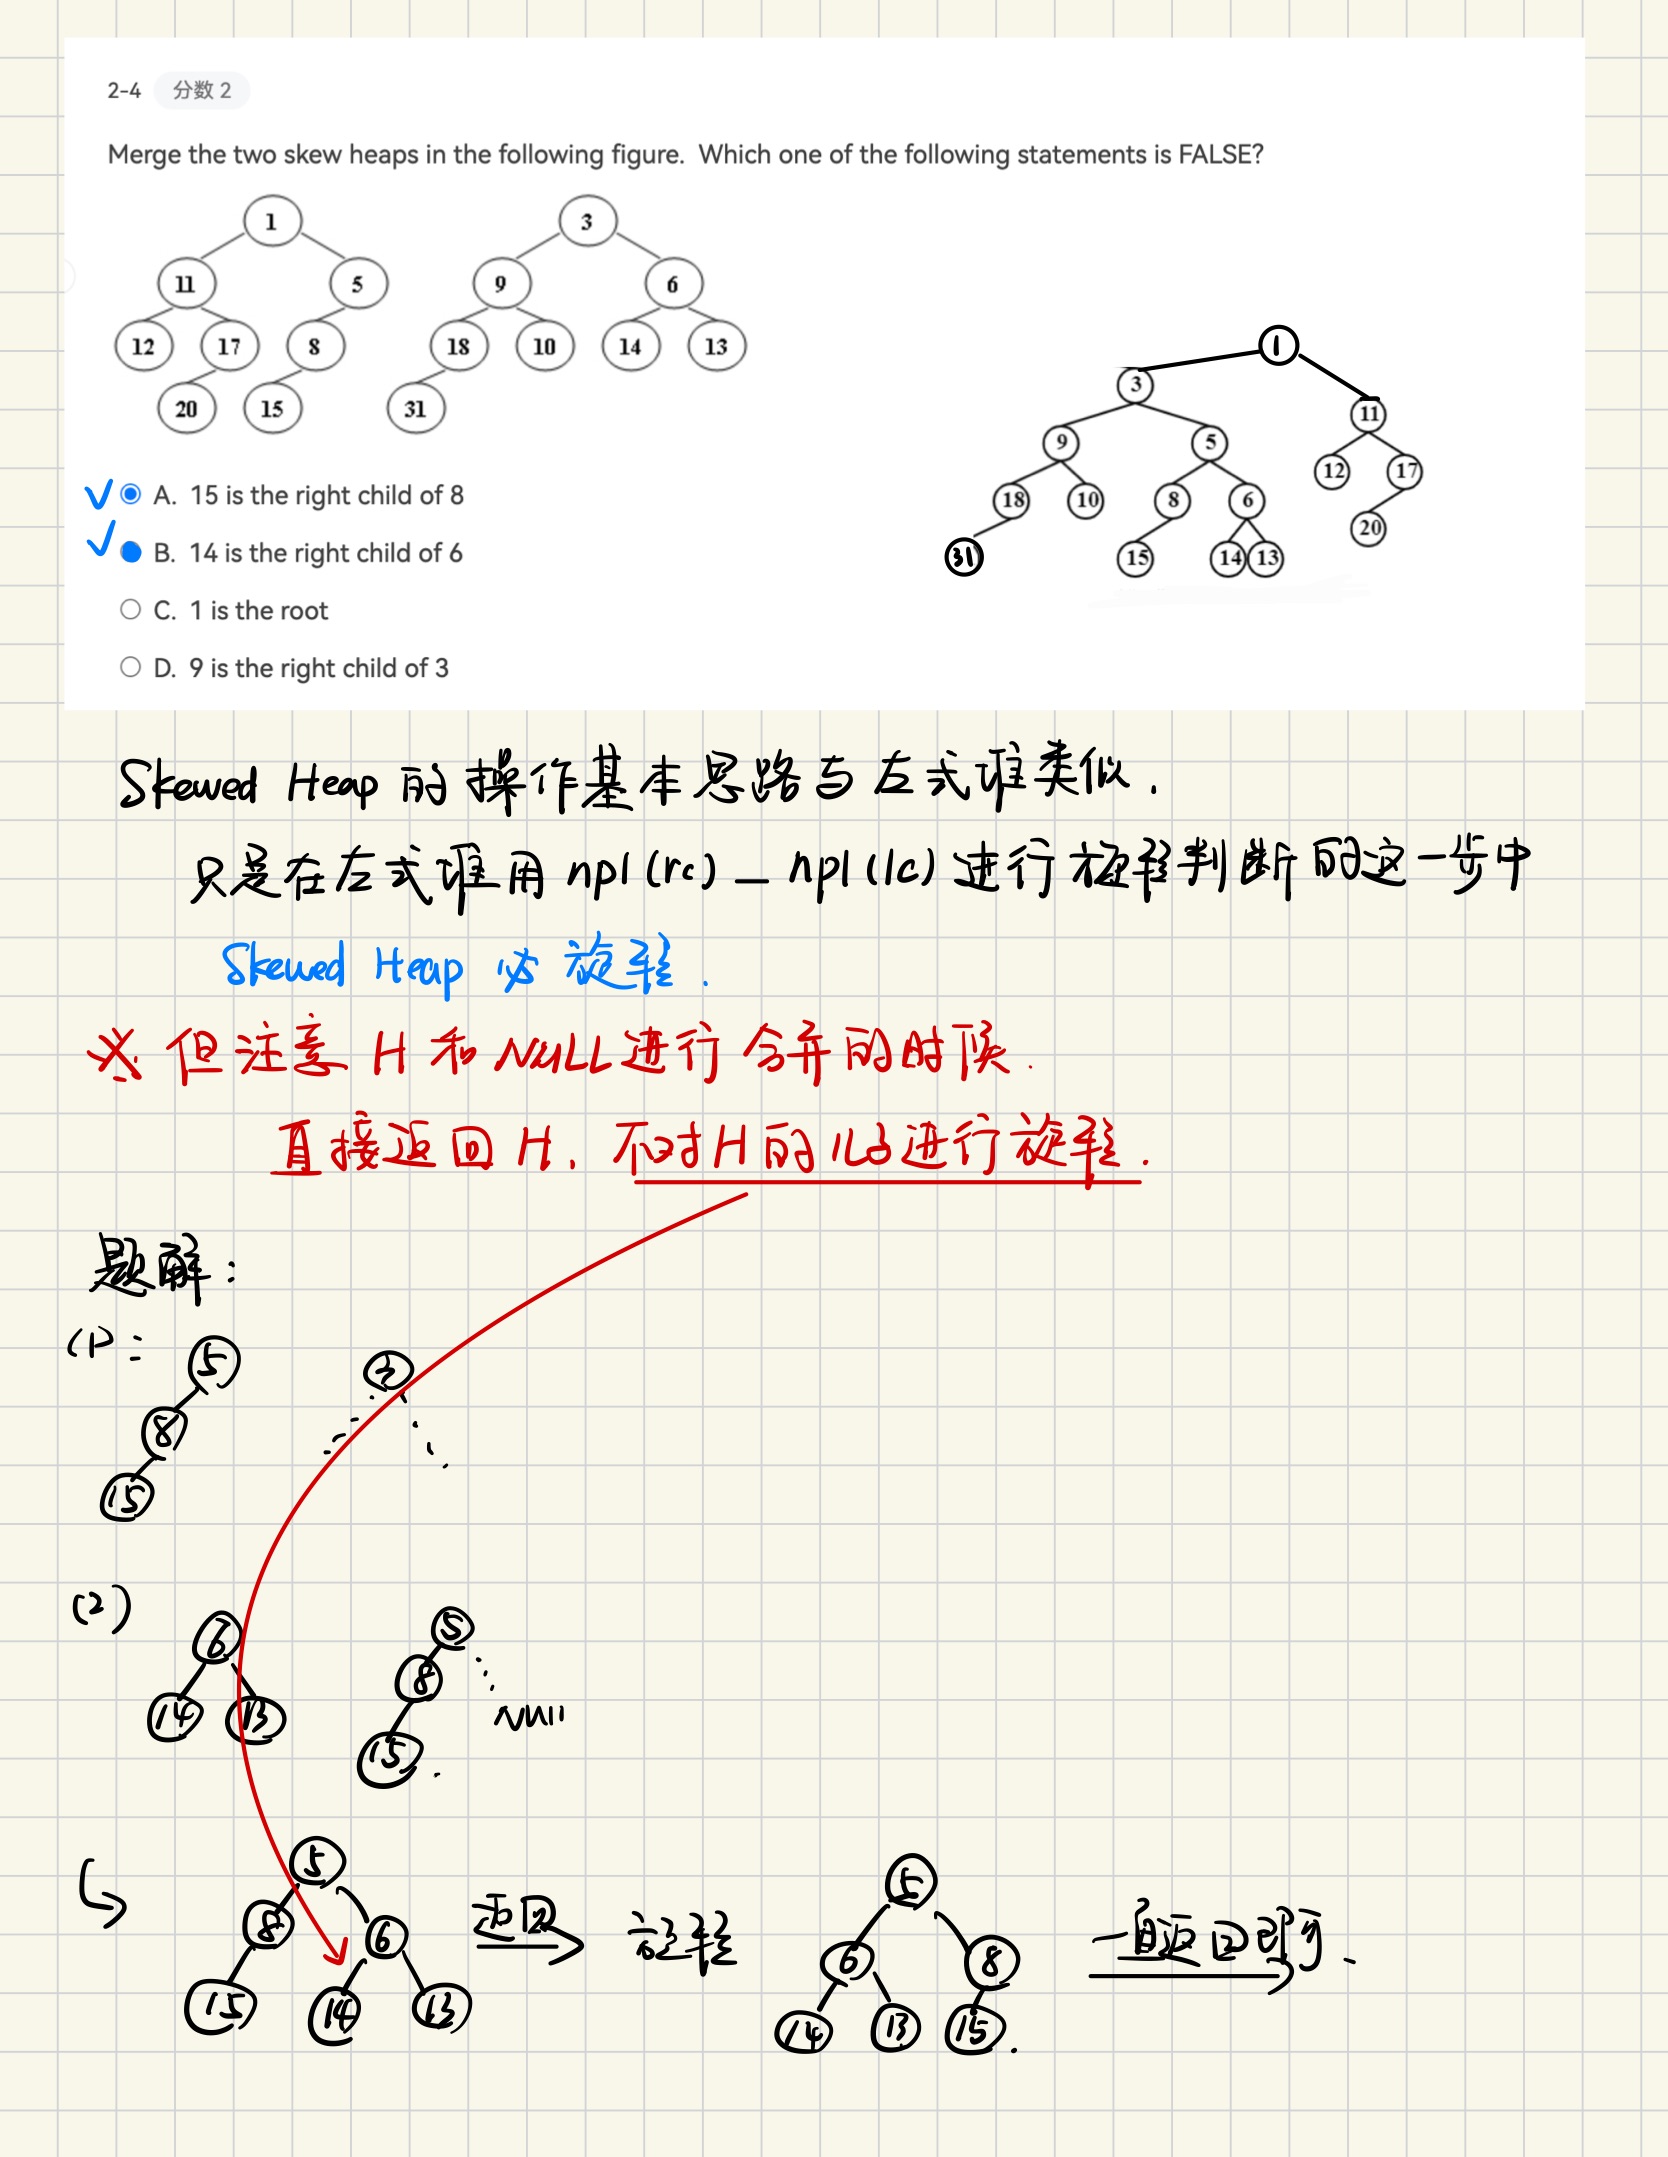 2-4 分数 2
Merge the two skew heaps in the following figure. Which one of the following statements is FALSE?
1 3
11 5 9 6
12 17 8 18 10 14 13
20 15 31
1
3 11
9 5 12 17
18 10 8 6 20
31 15 14 13
A. 15 is the right child of 8
B. 14 is the right child of 6
C. 1 is the root
D. 9 is the right child of 3
Skewed Heap 的操作基本思路与左式堆类似.
只是在左式堆用 npl(rc) — npl(lc) 进行旋转判断的这一步中
Skewed Heap 必旋转.
※ 但注意 H 和 NULL 进行合并的时候.
直接返回 H, 不对 H 的儿子进行旋转.
题解:
(1):
5 3
8
15
(2)
6 5
14 13 8
NUll
15
5
8 6
15 14 13
返回
旋转
5
6 8
14 13 15
一直返回即可.